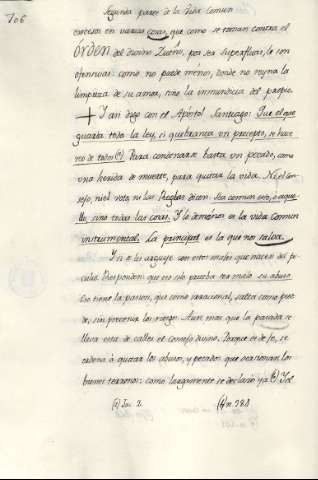 706
Segunda parte de la Vida Comun
exerceis en varias cosas, que como se toman contra el
ORDEN del divino Dueño, por ser superfluas, le son
ofensivas: como no puede menòs, donde no reyna la
limpieza de su amor, sino la inmundicia del propio.
+ Y asi digo con el Apóstol Santiago: Que el que
guarda toda la ley, si quebranta un precepto, se hace
reo de todos (a) Para condenarse basta un pecado, como
una herida de muerte, para quitar la vida. Ni el Con-
sejo, ni el voto, ni las Reglas dicen sea comun esto, o aque-
llo, sino todas las cosas. Y lo demàs es la vida comun
instrumental. La principal es la que no salva.
Y si os arguyo con estos males que nacen del pe-
culio. Respondeis que eso solo prueba ser malo su abuso
Eso tiene la pasion, que como irracional, salta como pue-
de, sin percibir los riesgos. Aun mas que la parada se
lleva esta de calles el Consejo divino. Porque es de fe, se
ordena à quitar los abusos, y pecados que ocasionan los
bienes terrenos: como largamente se declarò ya (b) Y el
(a) Jac. 2. (b) n. 288